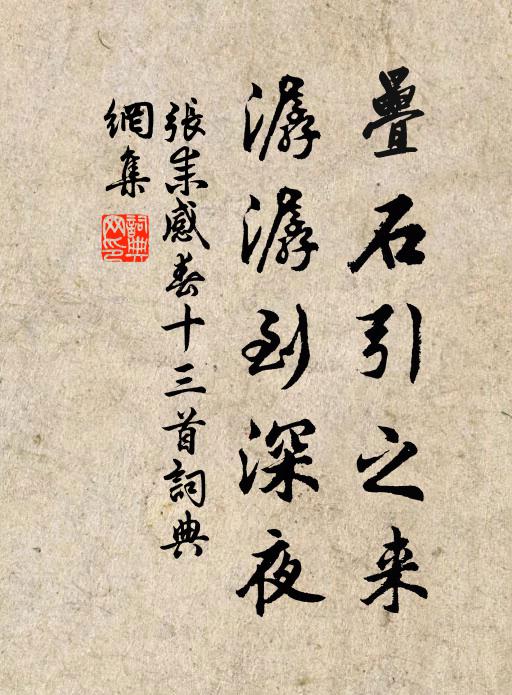 疊石引之来
潺潺到深夜
張耒感春十三首詞典
網集
詞典網印